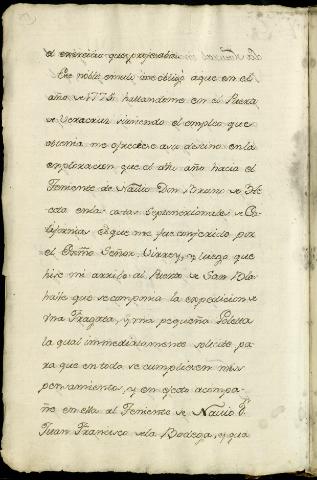 el exercicio que profesaba.
Este noble emulo me obligó a que en el
año de 1775 hallandome en el Puerto
de Veracruz sirviendo el empleo que
obtenia me ofreciese a su destino en la
exploracion que el dho año hacia el
Teniente de Navio Don Bruno de He
ceta en las costas Septentrionales de Ca
lifornias el que me fue conferido por
el Exmo Señor Virrey, y luego que
hise mi arribo al Puerto de San Blas
halle que se componia la expedicion de
una Fragata, y una pequeña Goletta
la qual immediatamente solicite pa
ra que en todo se cumpliesen mis
pensamientos, y en efecto acompa
ñe en ella al Teniente de Navio Dn
Juan Francisco de la Bodega, y qua